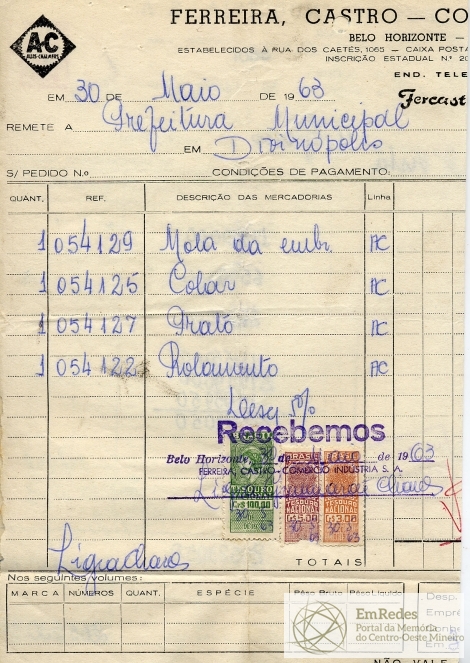 A-C
ALLIS-CHALMERS
FERREIRA, CASTRO — CO
BELO HORIZONTE —
ESTABELECIDOS À RUA DOS CAETÉS, 1065 — CAIXA POSTA
INSCRIÇÃO ESTADUAL N.º 20
END. TELE
Fercast
EM 30 DE Maio DE 1963
REMETE A Prefeitura Municipal
EM Divinópolis
S/ PEDIDO N.o CONDIÇÕES DE PAGAMENTO:
QUANT. REF. DESCRIÇÃO DAS MERCADORIAS Linha
1 054129 Mola da embr. AC
1 054125 Colar AC
1 054127 Prato AC
1 054122 Rolamento AC
Desc 5%
Recebemos
Belo Horizonte, de de 1963
FERREIRA, CASTRO - COMÉRCIO INDÚSTRIA S. A.
BRASIL
TESOURO NACIONAL TESOURO NACIONAL TESOURO NACIONAL
Cr$ 100,00 Cr$ 5,00 Cr$ 3,00
TOTAIS
Nos seguintes volumes:
MARCA NÚMEROS QUANT. ESPÉCIE Pêso Bruto Pêso Líquido
Desp.
Empre
Em
EmRedes
Portal da Memória
do Centro-Oeste Mineiro
NÃO VALE